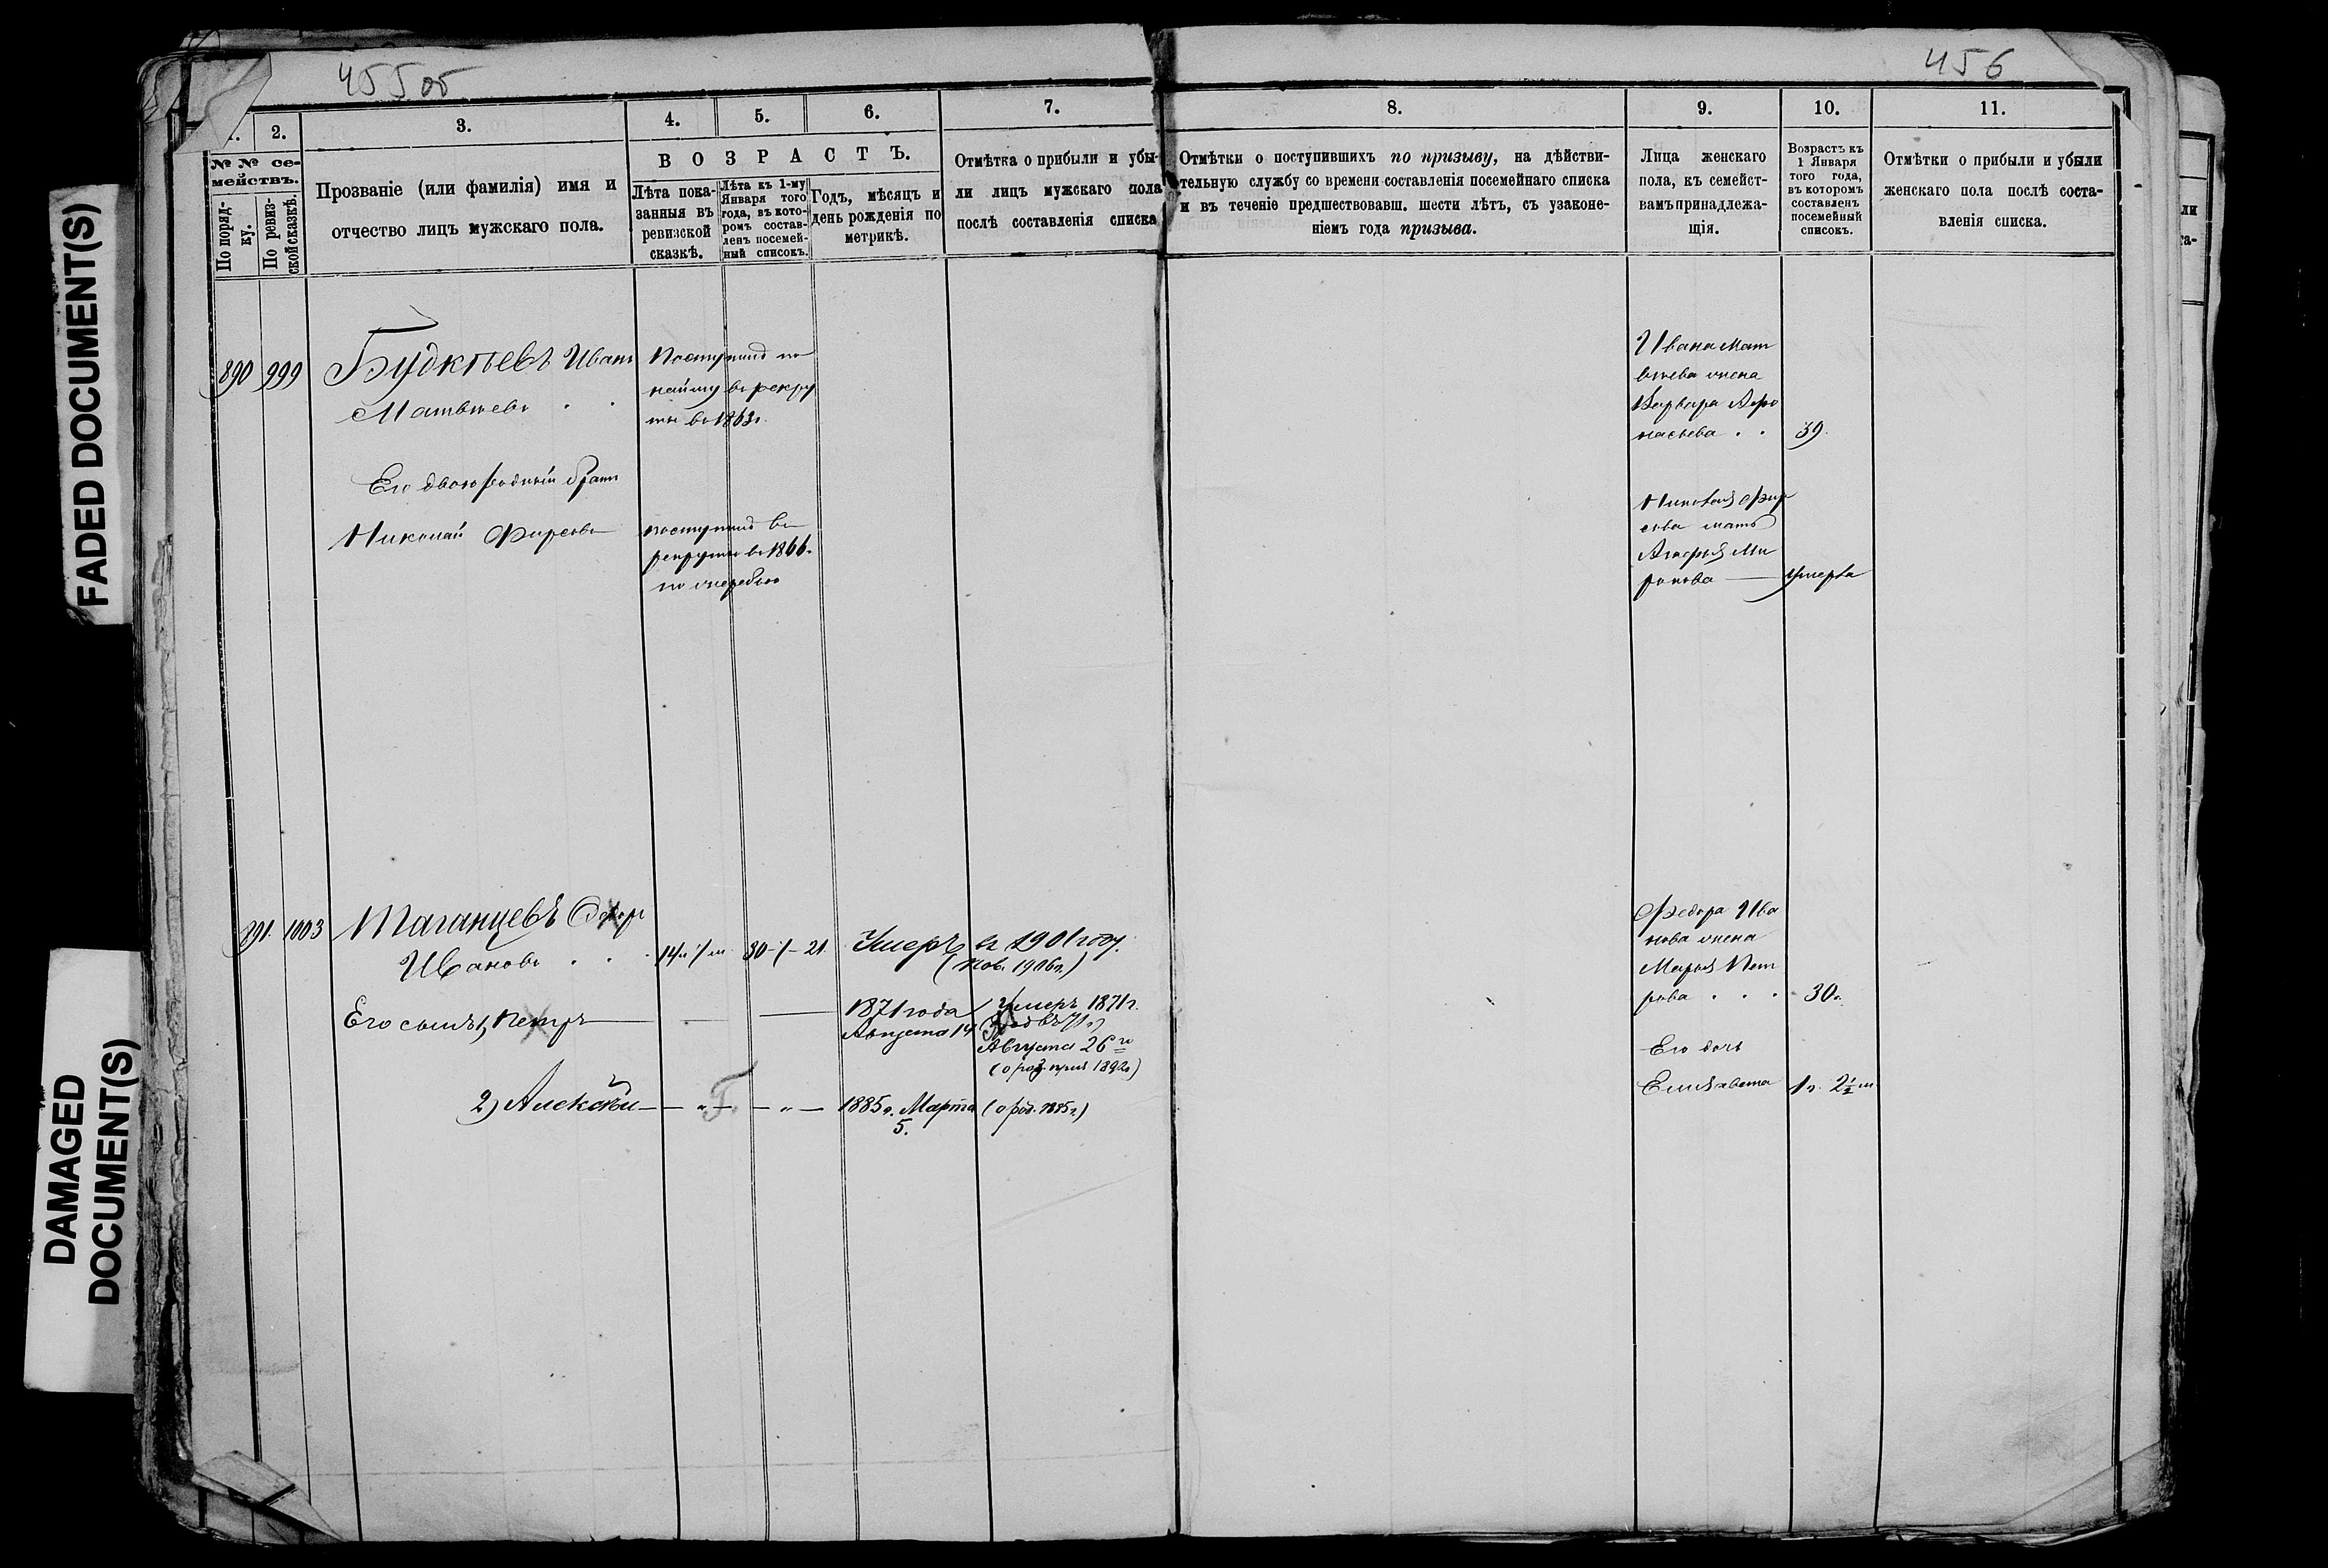 455 об
456
1.
2.
3.
4.
5.
6.
7.
8.
9.
10.
11.
№ № се-
мействъ.
По поряд-
ку.
По ревиз-
ской сказкѣ.
Прозваніе (или фамилія) имя и
отчество лицъ мужскаго пола.
ВОЗРАСТЪ.
Лѣта пока-
занныя въ
ревизской
сказкѣ.
Лѣта къ 1-му
Января того
года, въ кото-
ромъ состав-
ленъ посемей-
ный списокъ.
Годъ, мѣсяцъ и
день рожденія по
метрикѣ.
Отмѣтка о прибыли и убы-
ли лицъ мужскаго пола
послѣ составленія списка
Отмѣтки о поступившихъ по призыву, на дѣйстви-
тельную службу со времени составленія посемейнаго списка
и въ теченіе предшествовавш. шести лѣтъ, съ узаконе-
ніемъ года призыва.
Лица женскаго
пола, къ семейст-
вамъ принадлежа-
щія.
Возрастъ къ
1 Января
того года,
въ которомъ
составленъ
посемейный
списокъ.
Отмѣтки о прибыли и убыли
женскаго пола послѣ соста-
вленія списка.
890 999 Будкѣевъ Иванъ
Матвѣевъ
Поступилъ по
найму въ рекру
ты въ 1863г.
Ивана Мат
вѣева жена
Варвара Афо
насьева 39.
Его двоюродный братъ
Николай Фирсовъ
поступилъ въ
рекруты въ 1866г.
по очереди
Николая Фир
сова мать
Агафья Ми
ронова — умерла
891. 1003 Таганцевъ Федоръ
Ивановъ
30 - / - 21
Умеръ въ 1901 году.
(Нов. 1906г.)
Федора Ива
нова жена
Марья Пет
рова 30.
Его сынъ 1, Петръ
1871 года
Августа 14
Умеръ 1871г.
Августа 26го
Его дочь
Елизавета 1г. 2½ м
2) Алексѣй — „ — Г. — „ — 1885г. Марта
5.
(о род. 1885г.)
FADED DOCUMENT(S)
DAMAGED
DOCUMENT(S)